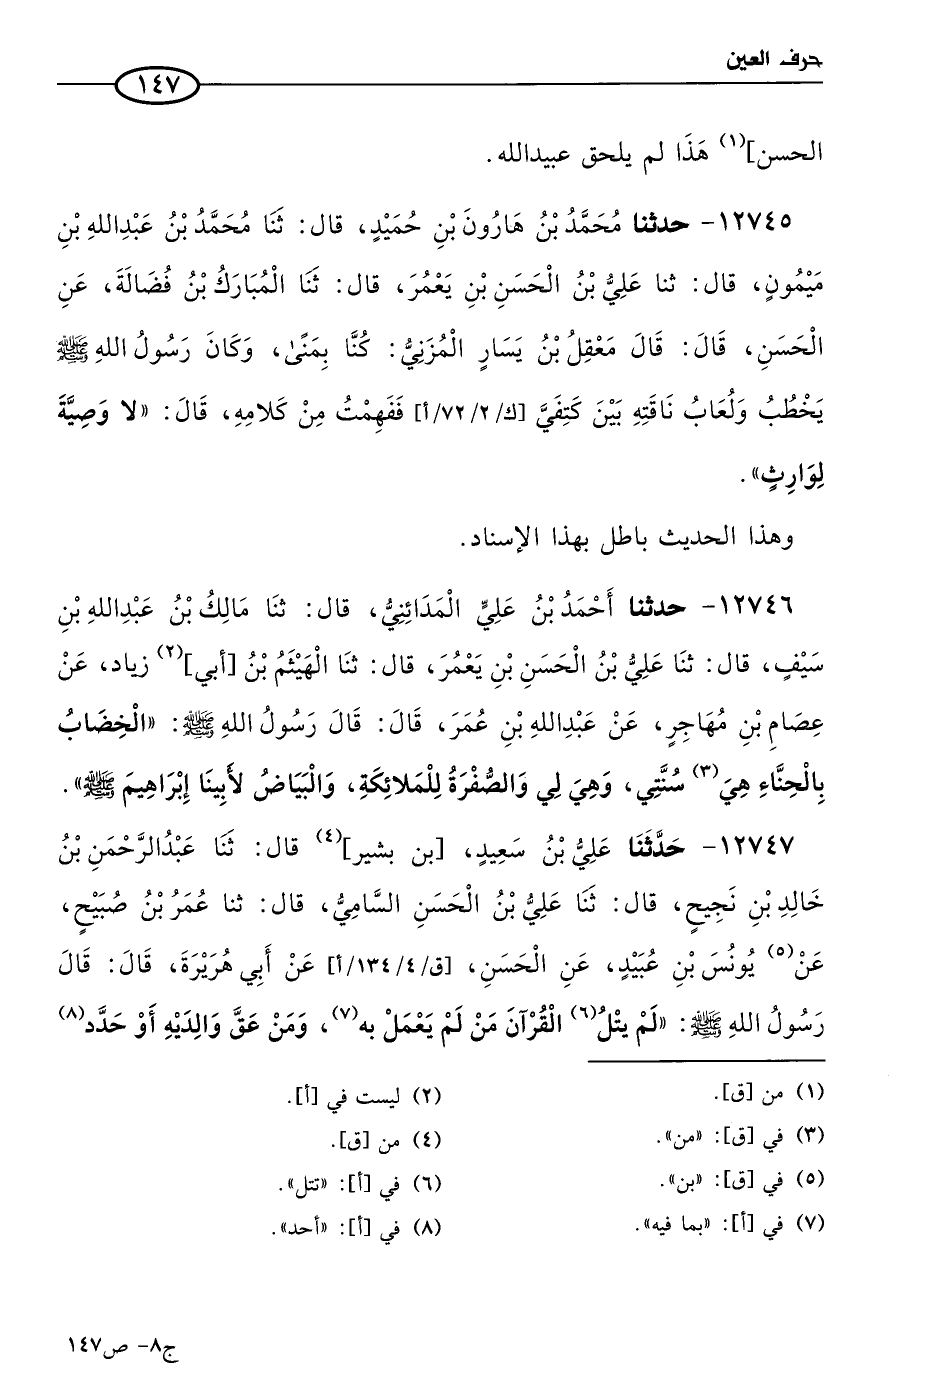 حرف العين
١٤٧
الحسن](١) هَذَا لم يلحق عبيدالله.
١٢٧٤٥- حدثنا مُحَمَّدُ بْنُ هَارُونَ بْنِ حُمَيْدٍ، قال: ثَنَا مُحَمَّدُ بْنُ عَبْدِاللهِ بْنِ
مَيْمُونٍ، قال: ثنا عَلِيُّ بْنُ الْحَسَنِ بْنِ يَعْمُرَ، قال: ثَنَا الْمُبَارَكُ بْنُ فُضَالَةَ، عَنِ
الْحَسَنِ، قَالَ: قَالَ مَعْقِلُ بْنُ يَسَارٍ الْمُزَنِيُّ: كُنَّا بِمَنًى، وَكَانَ رَسُولُ اللهِ ﷺ
يَخْطُبُ وَلُعَابُ نَاقَتِهِ بَيْنَ كَتِفَيَّ [ك/٧٢/٢/أ] فَفَهِمْتُ مِنْ كَلامِهِ، قَالَ: «لا وَصِيَّةَ
لِوَارِثٍ».
وهذا الحديث باطل بهذا الإسناد.
١٢٧٤٦- حدثنا أَحْمَدُ بْنُ عَلِيٍّ الْمَدَائِنِيُّ، قال: ثنَا مَالِكُ بْنُ عَبْدِاللهِ بْنِ
سَيْفٍ، قال: ثَنَا عَلِيُّ بْنُ الْحَسَنِ بْنِ يَعْمُرَ، قال: ثَنَا الْهَيْثَمُ بْنُ [أبي](٢) زياد، عَنْ
عِصَامِ بْنِ مُهَاجِرٍ، عَنْ عَبْدِاللهِ بْنِ عُمَرَ، قَالَ: قَالَ رَسُولُ اللهِ ﷺ: «الْخِضَابُ
بِالْحِنَّاءِ هِيَ(٣) سُنَّتِي، وَهِيَ لِي وَالصُّفْرَةُ لِلْمَلائِكَةِ، وَالْبَيَاضُ لأَبِينَا إِبْرَاهِيمَ ﷺ».
١٢٧٤٧- حَدَّثَنَا عَلِيُّ بْنُ سَعِيدٍ، [بن بشير](٤) قال: ثَنَا عَبْدُالرَّحْمَنِ بْنُ
خَالِدِ بْنِ نَجِيحٍ، قال: ثَنَا عَلِيُّ بْنُ الْحَسَنِ السَّامِيُّ، قال: ثنا عُمَرُ بْنُ صُبَيْحٍ،
عَنْ(٥) يُونُسَ بْنِ عُبَيْدٍ، عَنِ الْحَسَنِ، [ق/١٣٤/٤/أ] عَنْ أَبِي هُرَيْرَةَ، قَالَ: قَالَ
رَسُولُ اللهِ ﷺ: «لَمْ يتْلُ(٦) الْقُرْآنَ مَنْ لَمْ يَعْمَلْ به(٧)، وَمَنْ عَقَّ وَالِدَيْهِ أَوْ حَدَّد(٨)
(١) من [ق].
(٢) ليست في [أ].
(٣) في [ق]: «من».
(٤) من [ق].
(٥) في [ق]: «بن».
(٦) في [أ]: «تتل».
(٧) في [أ]: «بما فيه».
(٨) في [أ]: «أحد».
ج٨- ص١٤٧